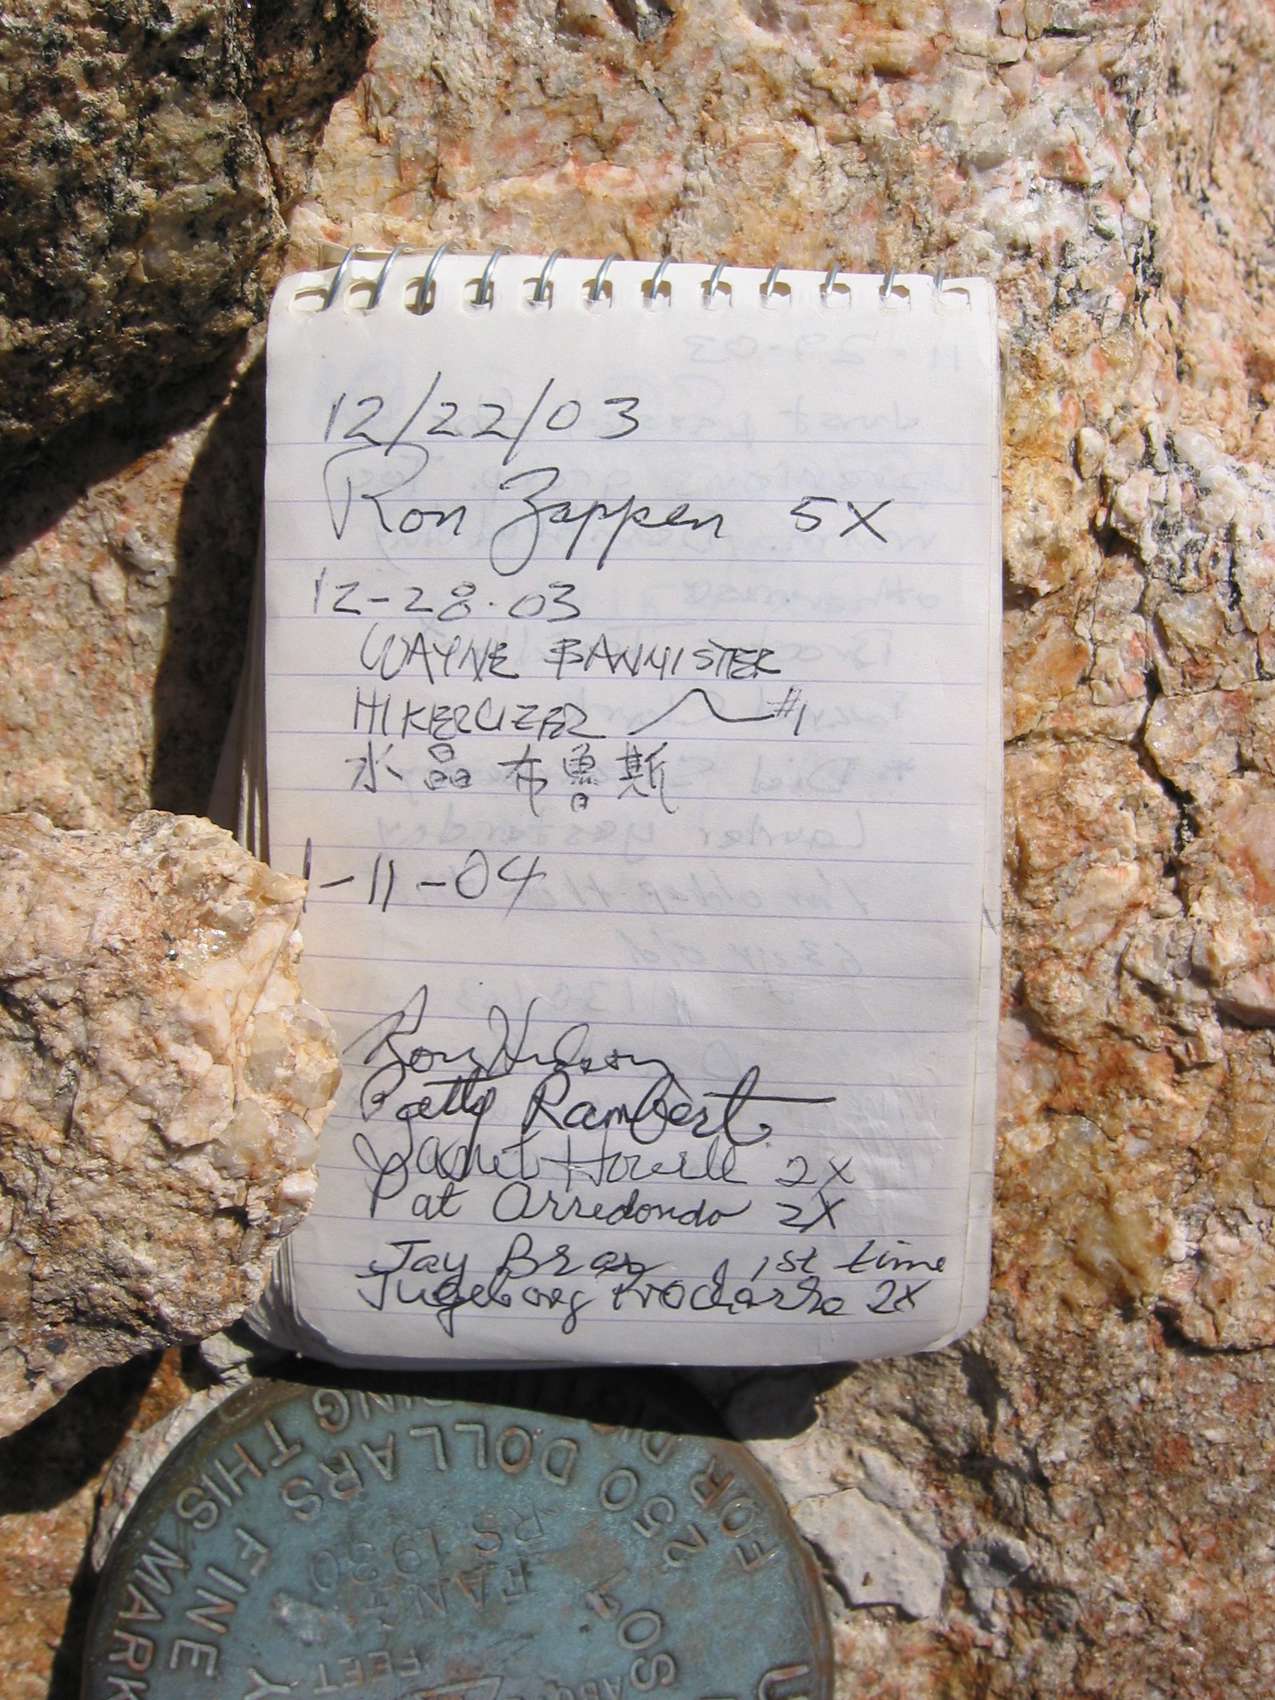 12/22/03
Ron Zappen 5X
12-28-03
WAYNE BANNISTER
HIKERCIZER #1
水晶布魯斯
1-11-04
Hudson
Patty Rambert
Janet Howell 2X
Pat Arredondo 2X
Jay Bray 1st time
2X
FOR DIS RING THIS MARK
250 DOLLARS FINE
FANG
RS 1930
FEET